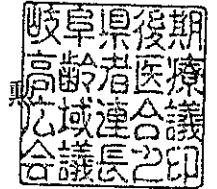 岐阜県後期
高齢者医療
広域連合議
会議長之印